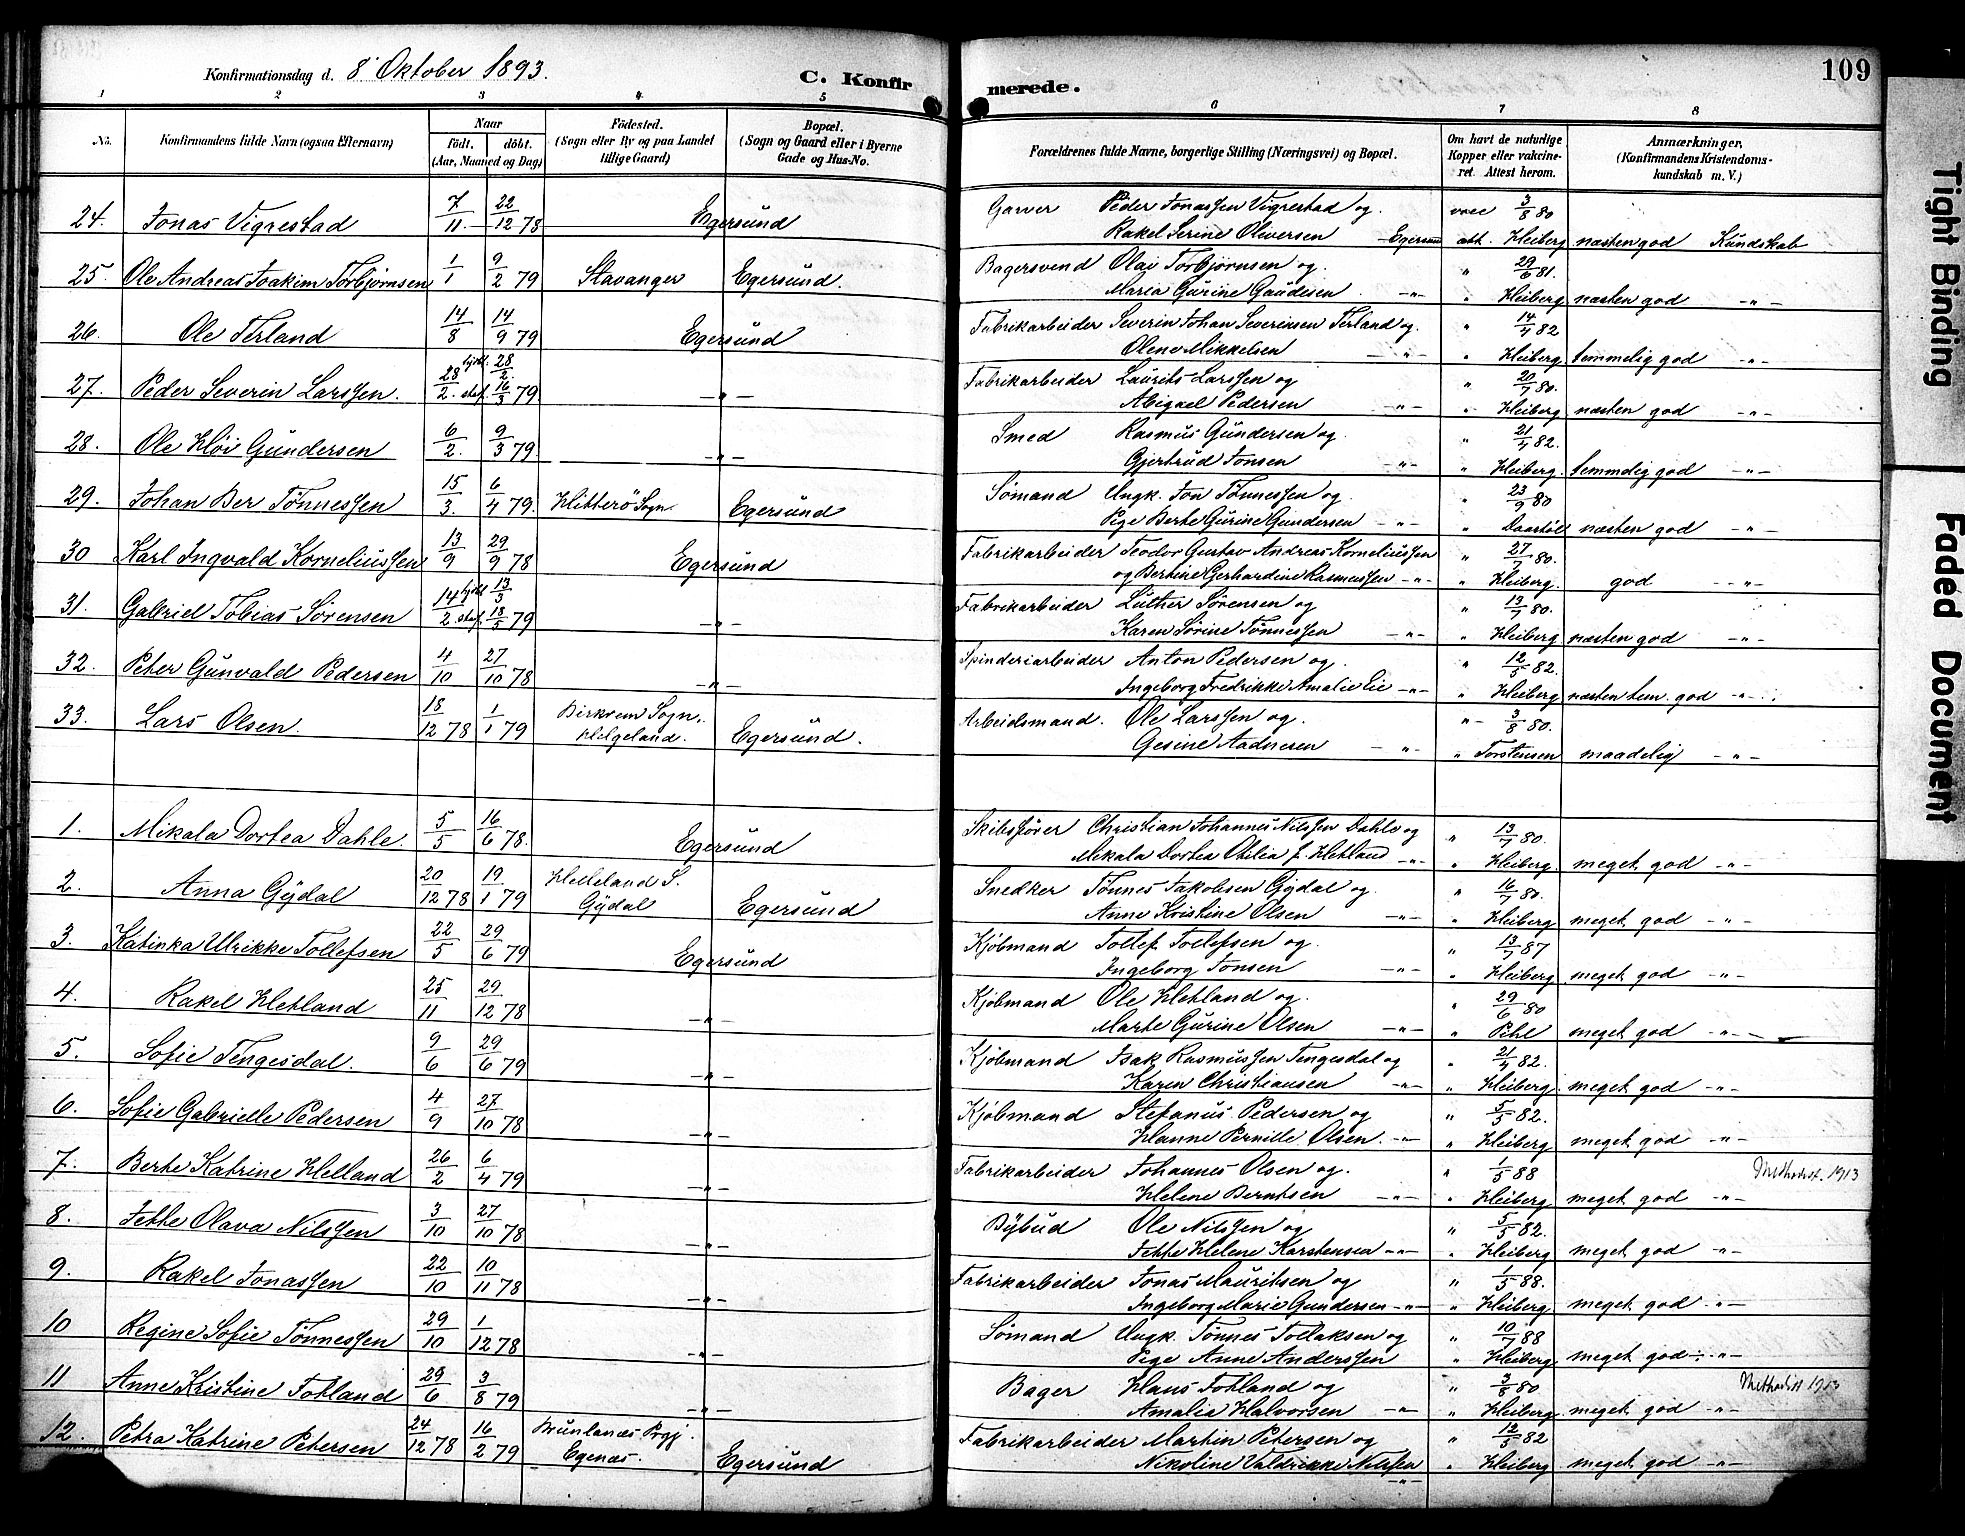 Konfirmationsdag d. 8' Oktober 1893.
C. Konfirmerede.
109
1 2 3 4 5 6 7 8
No.
Konfirmandens fulde Navn (ogsaa Efternavn)
Naar
födt. döbt.
(Aar, Maaned og Dag)
Födested.
(Sogn eller By og paa Landet
tillige Gaard)
Bopæl.
(Sogn og Gaard eller i Byerne
Gade og Hus-No.
Forældrenes fulde Navne, borgerlige Stilling (Næringsvei) og Bopæl.
Om havt de naturlige
Kopper eller vakcine-
ret. Attest herom.
Anmærkninger,
(Konfirmandens Kristendoms-
kundskab m. V.)
24. Jonas Vigrestad 7/11 22/12 78 Egersund Garver Peder Jonassen Vigrestad og vacc 3/8 80
Rakel Serine Oliversen Egersund att. Heiberg næsten god Kundskab
25. Ole Andreas Joakim Torbjørnsen 1/1 9/2 79 Stavanger Egersund. Bagersvend Olai Torbjørnsen og " 29/6 81.
Maria Gurine Gaudesen -"- " Heiberg næsten god -"-
26. Ole Terland 14/8 14/9 79 Egersund Fabrikarbeider Severin Johan Severinsen Terland og " 14/4 82
Olene Mikkelsen -"- " Heiberg temmelig god -"-
27. Peder Severin Larssen. 28/2 hjdt. 28/2 staf. 16/3 79 -"- Fabrikarbeider Laurits Larssen og " 20/7 80.
Abigael Pedersen -"- " Heiberg næsten god -"-
28. Ole Kløi Gundersen 6/2 9/3 79. -"- Smed Rasmus Gundersen og " 21/4 82.
Gjertrud Jonsen -"- " Heiberg. temmelig god -"-
29. Johan Ber Tønnessen 15/3 6/4 79. Hitterø Sogn. Egersund Sømand Ungk. Jon Tønnessen og " 23/9 80
Pige Berte Gurine Gundersen -"- " Daastøl næsten god -"-
30 Karl Ingvald Korneliussen 13/9 29/9 78 Egersund Fabrikarbeider Teodor Gustav Andreas Korneliussen " 27/7 80.
og Bertine Gerhardine Rasmussen -"- " Heiberg. god -"-
31. Gabriel Tobias Sørensen 14/2 hjdt 13/3 staf. 18/5 79 -"- Fabrikarbeider Luther Sørensen og " 13/7 80.
Karen Sørine Tønnessen -"- " Heiberg næsten god -"-
32. Peter Gunvald Pedersen 4/10 27/10 78 -"- Spinderiarbeider Anton Pedersen og. " 12/5 82.
Ingeborg Fredrikke Amalie Lie -"- " Heiberg næsten tem. god -"-
33. Lars Olsen. 18/12 78 1/1 79 Birkrem Sogn. Arbeidsmand. Ole Larssen og. " 3/8 80.
Helgeland. Egersund. Gesine Aadnesen -"- " Torstensen maadelig -"-
1. Mikala Dortea Dahle. 5/5 16/6 78. Egersund Skibsfører Christian Johannes Nilssen Dahle og " 13/7 80.
Mikala Dortea Otilia f. Hetland -"- " Heiberg. meget god -"-
2. Anna Gÿdal 20/12 78 19/1 79 Helleland S. Snedker Tønnes Jakobsen Gÿdal og. " 16/7 80.
Gÿdal Egersund Anne Kristine Olsen -"- " Heiberg meget god -"-
3. Katinka Ulrikke Tollefsen 22/5 29/6 79 Egersund Kjøbmand Tollef Tollefsen og. " 13/7 87
Ingeborg Jonsen -"- " Heiberg meget god -"-
4. Rakel Hetland 25/11 29/12 78 -"- Kjøbmand Ole Hetland og. " 29/6 80
Marte Gurine Olsen -"- " Pihl meget god -"-
5. Sofie Tengesdal. 9/6 29/6 79 -"- Kjøbmand Isak Rasmussen Tengesdal og " 21/4 82.
Karen Christiansen -"- " Heiberg. meget god -"-
6. Sofie Gabrielle Pedersen 4/9 27/10 78 -"- Kjøbmand Stefanus Pedersen og " 5/5 82.
Hanne Pernille Olsen. -"- " Heiberg meget god -"-
7. Berte Katrine Helland 26/2 6/4 79 -"- Fabrikarbeider Johannes Olsen og. " 1/5 88 Methodist. 1913
Helene Berntsen -"- " Heiberg meget god -"-
8. Jette Olava Nilssen 3/10 27/10 78 -"- Bÿbud Ole Nilssen og " 5/5 82.
Jette Helene Karstensen -"- " Heiberg meget god -"-
9. Rakel Jonassen 22/10 10/11 78 -"- Fabrikarbeider Jonas Mauritsen og " 1/5 88.
Ingeborg Marie Gundersen -"- " Heiberg meget god -"-
10 Regine Sofie Tønnessen 29/10 1/12 78 -"- Sømand Ungk. Tønnes Tollaksen og " 10/7 88
Pige Anne Anderssen " Heiberg meget god -"-
11 Anne Kristine Totland 29/6 3/8 79 -"- Bager Hans Totland og " 3/8 80 Methodist 1913
Amalia Halvorsen -"- " Heiberg meget god -"-
12. Petra Katrine Petersen 24/12 78 16/2 79 Brunlanæs Prgj. Fabrikarbeider Martin Petersen og " 12/5 82
Egenæs. Egersund Nikoline Valdrikke Nilssen -"- " Heiberg meget god -"-
Tight Binding
Faded Document